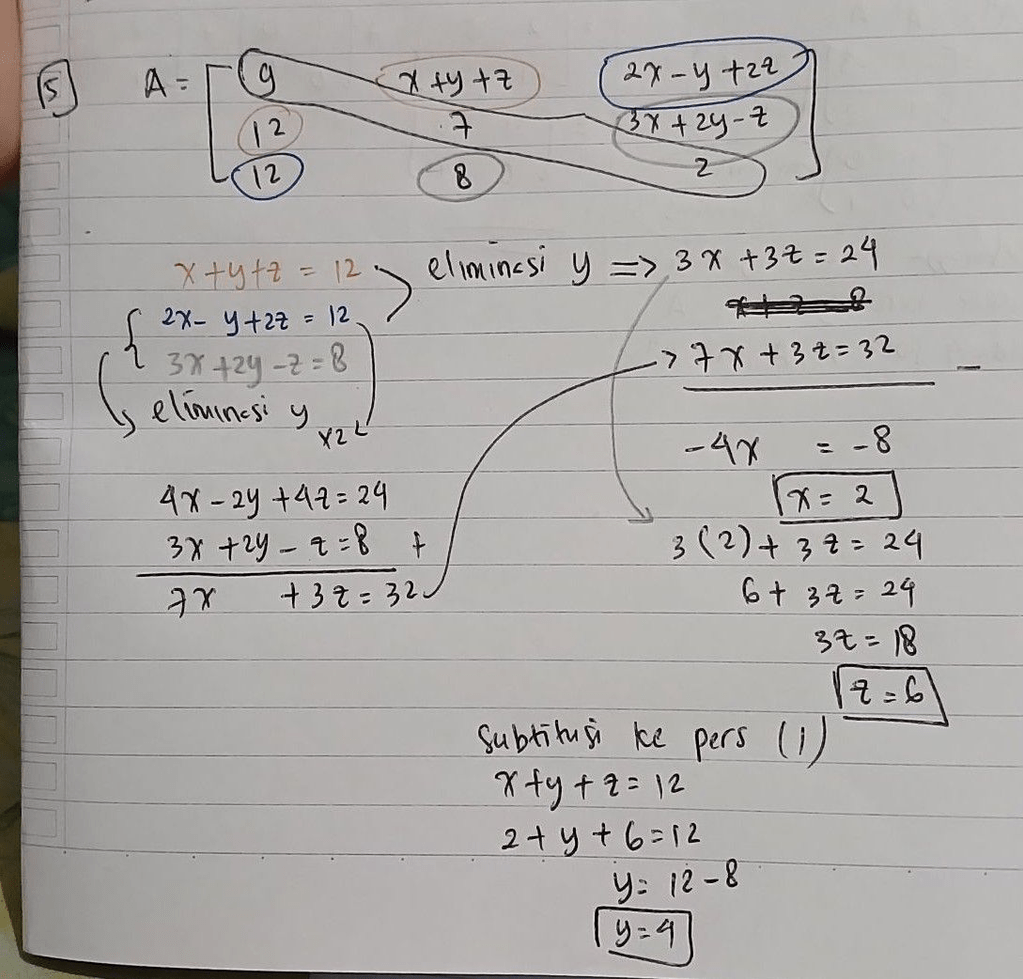 5 A = [ 9 x+y+z 2x-y+2z
12 7 3x+2y-z
12 8 2 ]
x+y+z = 12 eliminasi y => 3x+3z = 24
2x-y+2z = 12
3x+2y-z = 8 7x+3z = 32 -
eliminasi y x2
-4x = -8
4x-2y+4z = 24 x = 2
3x+2y-z = 8 + 3(2)+3z = 24
7x +3z = 32 6+3z = 24
3z = 18
z = 6
Subtitusi ke pers (1)
x+y+z = 12
2+y+6 = 12
y = 12-8
y = 4